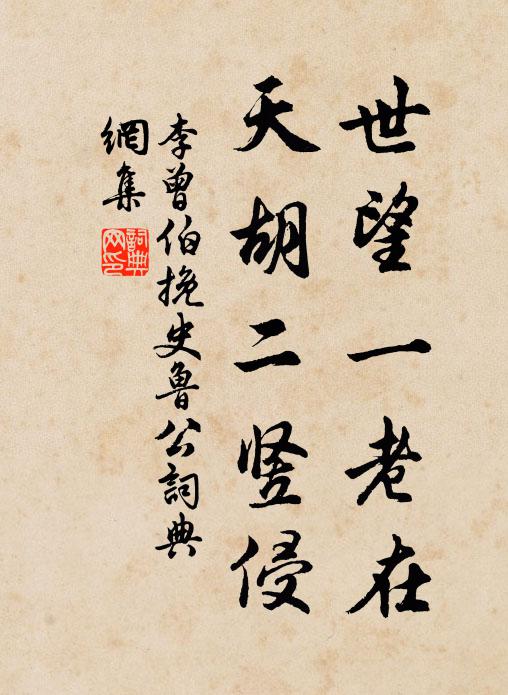 世望一老在
天胡二竖侵
李曾伯挽史魯公詞典
網集
詞典
网印